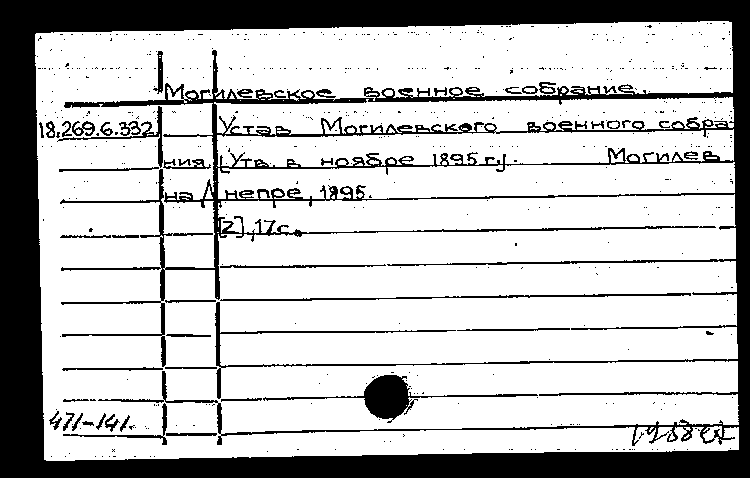 Могилевское военное собрание.
18.269.6.332. Устав Могилевского военного собра-
ния. [Утв. в ноябре 1895 г.]. Могилев
на Днепре, 1895.
[2], 17 с.
471-141.